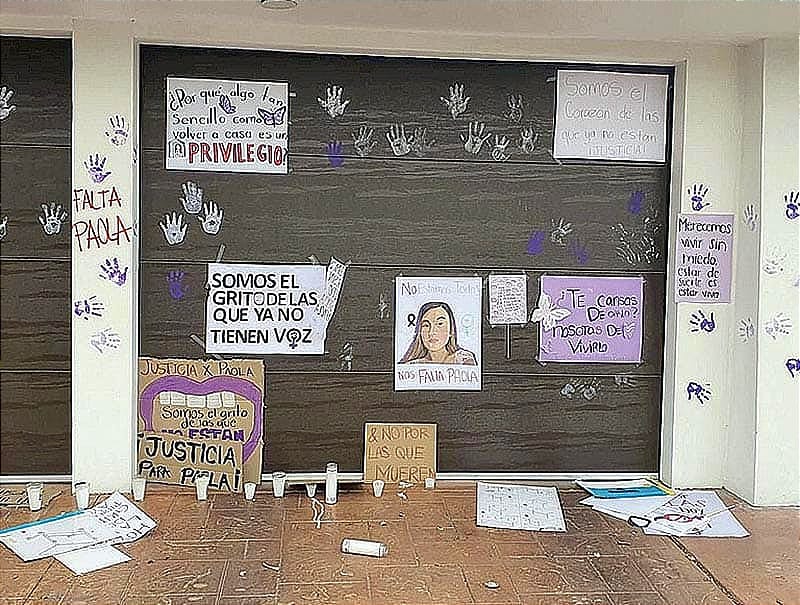 ¿Por qué algo tan
Sencillo como
volver a casa es un
PRIVILEGIO?
Somos el
Corazon de las
que ya no estan
¡JUSTICIA!
FALTA
PAOLA
Merecemos
vivir sin
miedo,
estar de
suerte es
estar viva
SOMOS EL
GRITO DE LAS
QUE YA NO
TIENEN VOZ
No Estamos Todas
NOS FALTA PAOLA
¿TE Cansas
De oirlo?
nosotras DE
Vivirlo
JUSTICIA X PAOLA
Somos el grito
de las que
YA NO ESTAN
¡JUSTICIA,
PARA PAOLA!
& NO POR
LAS QUE
MUEREN